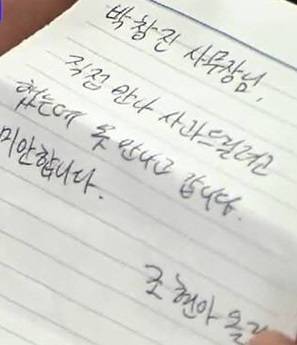 박창진 사무장님,
직접 만나 사과드릴려고
했는데 못 만나고 갑니다.
미안합니다.
조현아 올림